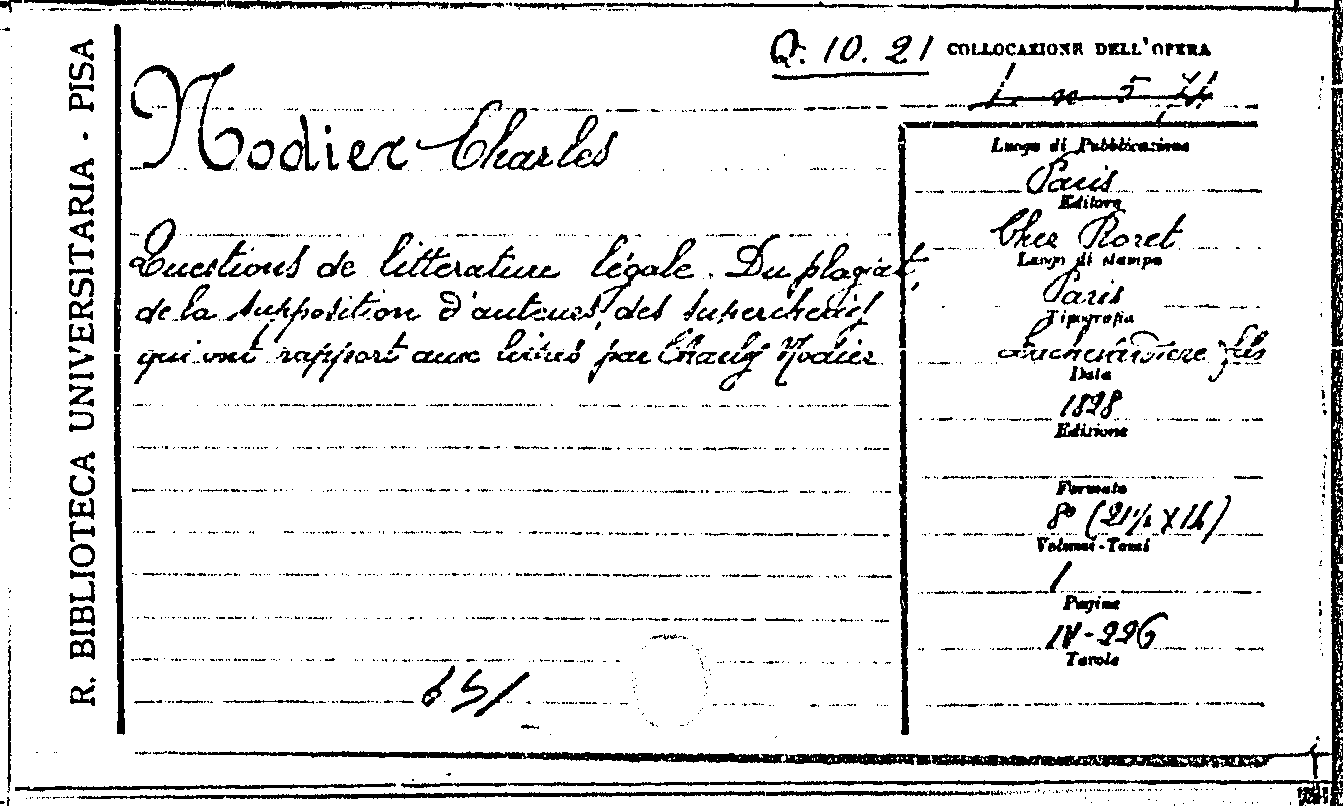 R. BIBLIOTECA UNIVERSITARIA - PISA
Q. 10. 21 COLLOCAZIONE DELL'OPERA
Nodier Charles
Questions de littérature légale. Du plagiat,
de la supposition d'auteurs, des supercheries
qui ont rapport aux livres par Charles Nodier
Luogo di Pubblicazione
Paris
Editore
Chez Roret
Luogo di stampa
Paris
Tipografia
fils
Data
1828
Edizione
Formato
8° (21½ x 14)
Volumi - Tomi
1
Pagine
IV-226
Tavole
651